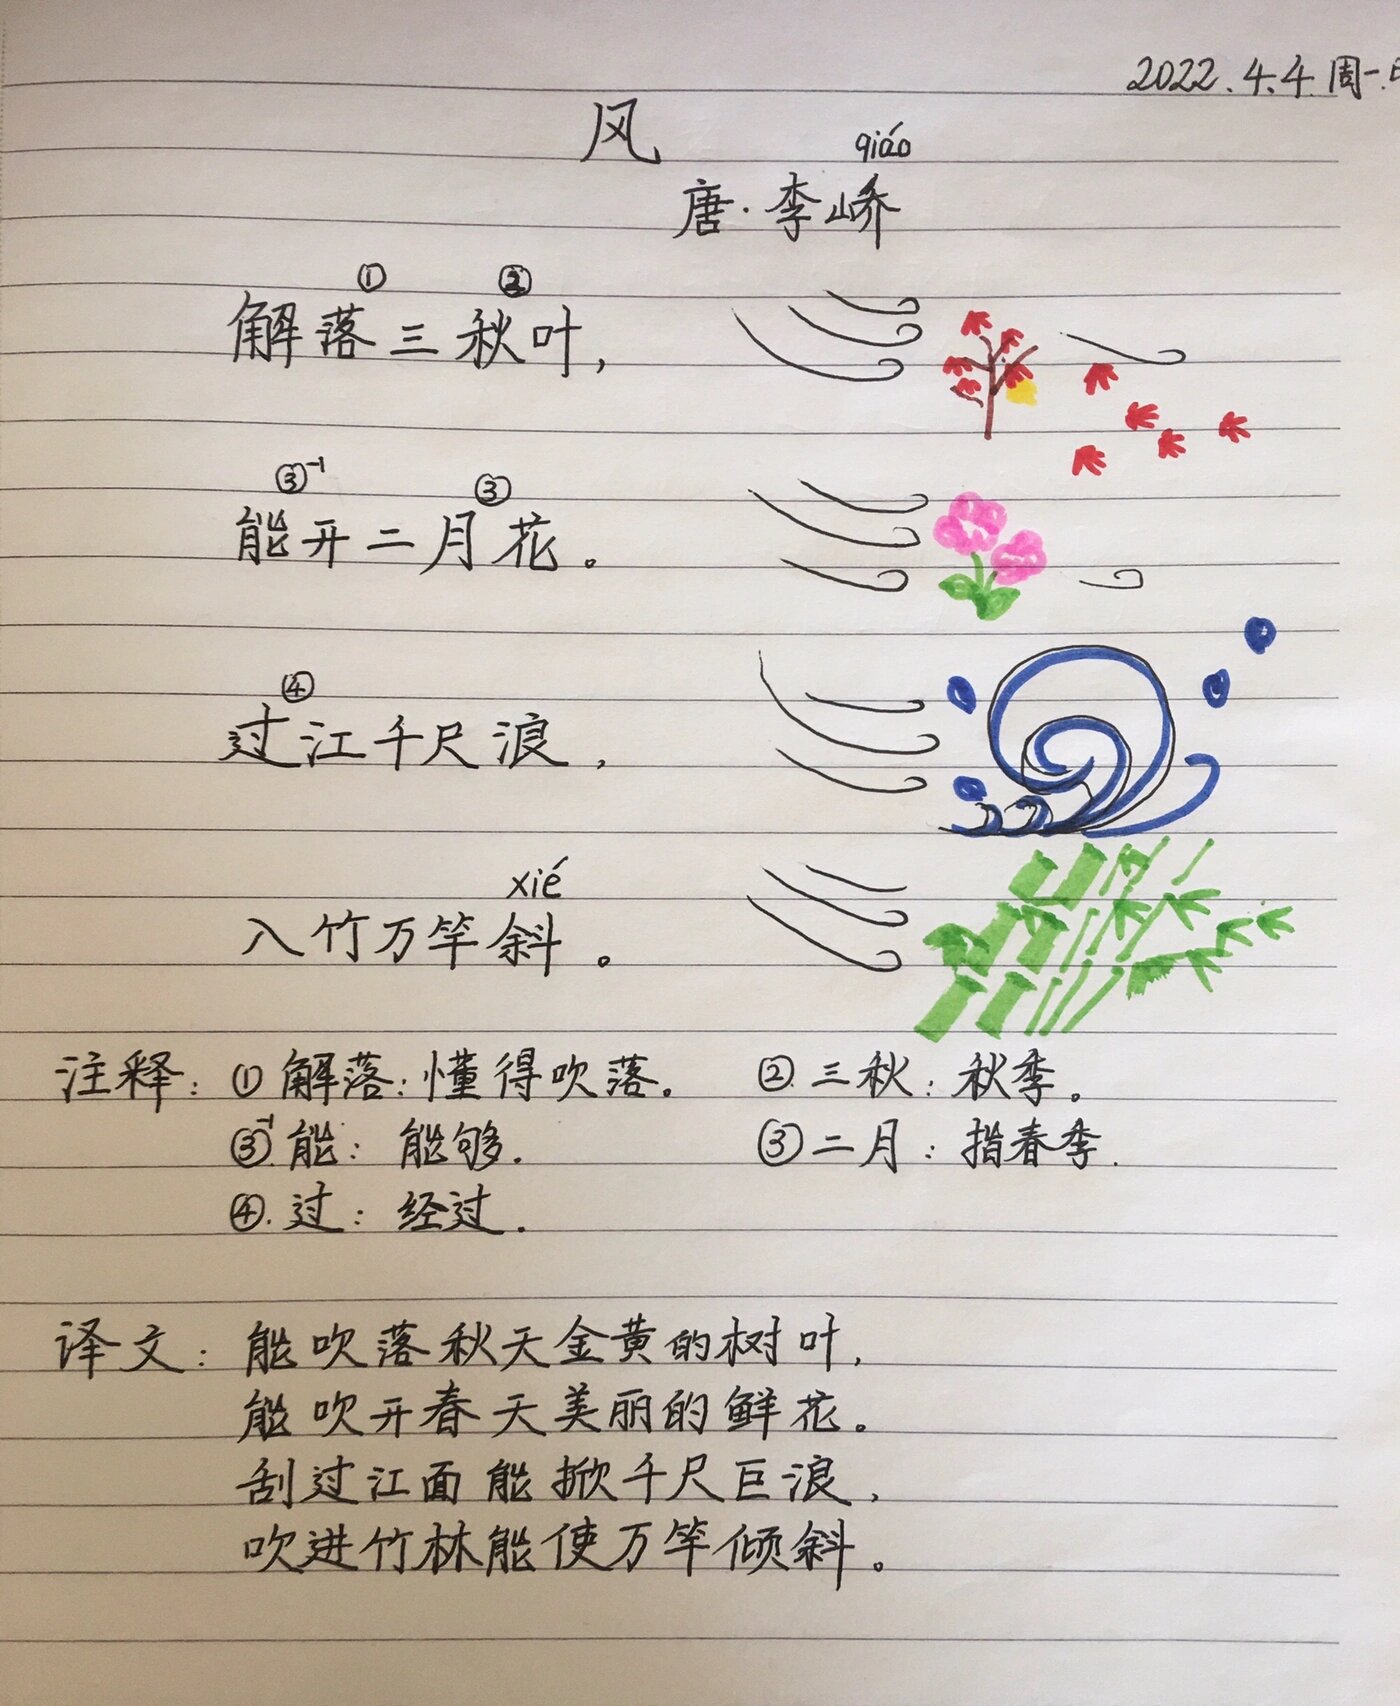 2022.4.4.周一.
风
qiáo
唐·李峤
① ②
解落三秋叶,
③-1 ③
能开二月花。
④
过江千尺浪,
xié
入竹万竿斜。
注释: ①解落:懂得吹落. ②.三秋:秋季。
③-1.能: 能够. ③二月:指春季.
④.过: 经过.
译文: 能吹落秋天金黄的树叶,
能吹开春天美丽的鲜花。
刮过江面能掀千尺巨浪,
吹进竹林能使万竿倾斜。